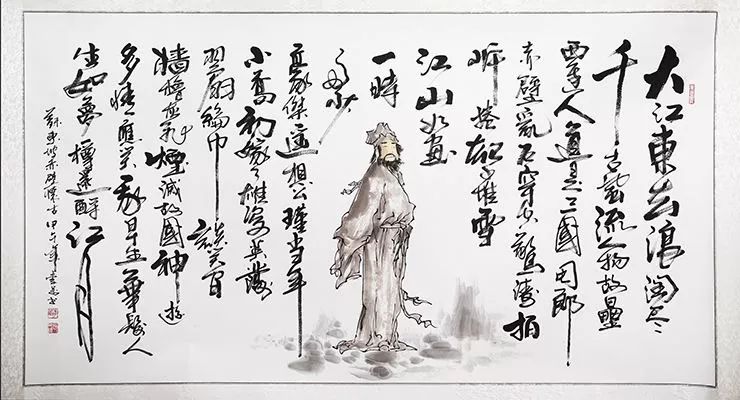 大江東去浪淘盡
千古風流人物故壘
西邊人道是三國周郎
赤壁亂石穿空驚濤拍
岸捲起千堆雪
江山如畫
一時
多少
豪傑遙想公瑾當年
小喬初嫁了雄姿英發
羽扇綸巾談笑間
檣櫓灰飛煙滅故國神遊
多情應笑我早生華髮人
生如夢樽還酹江月
蘇東坡赤壁懷古甲午年書